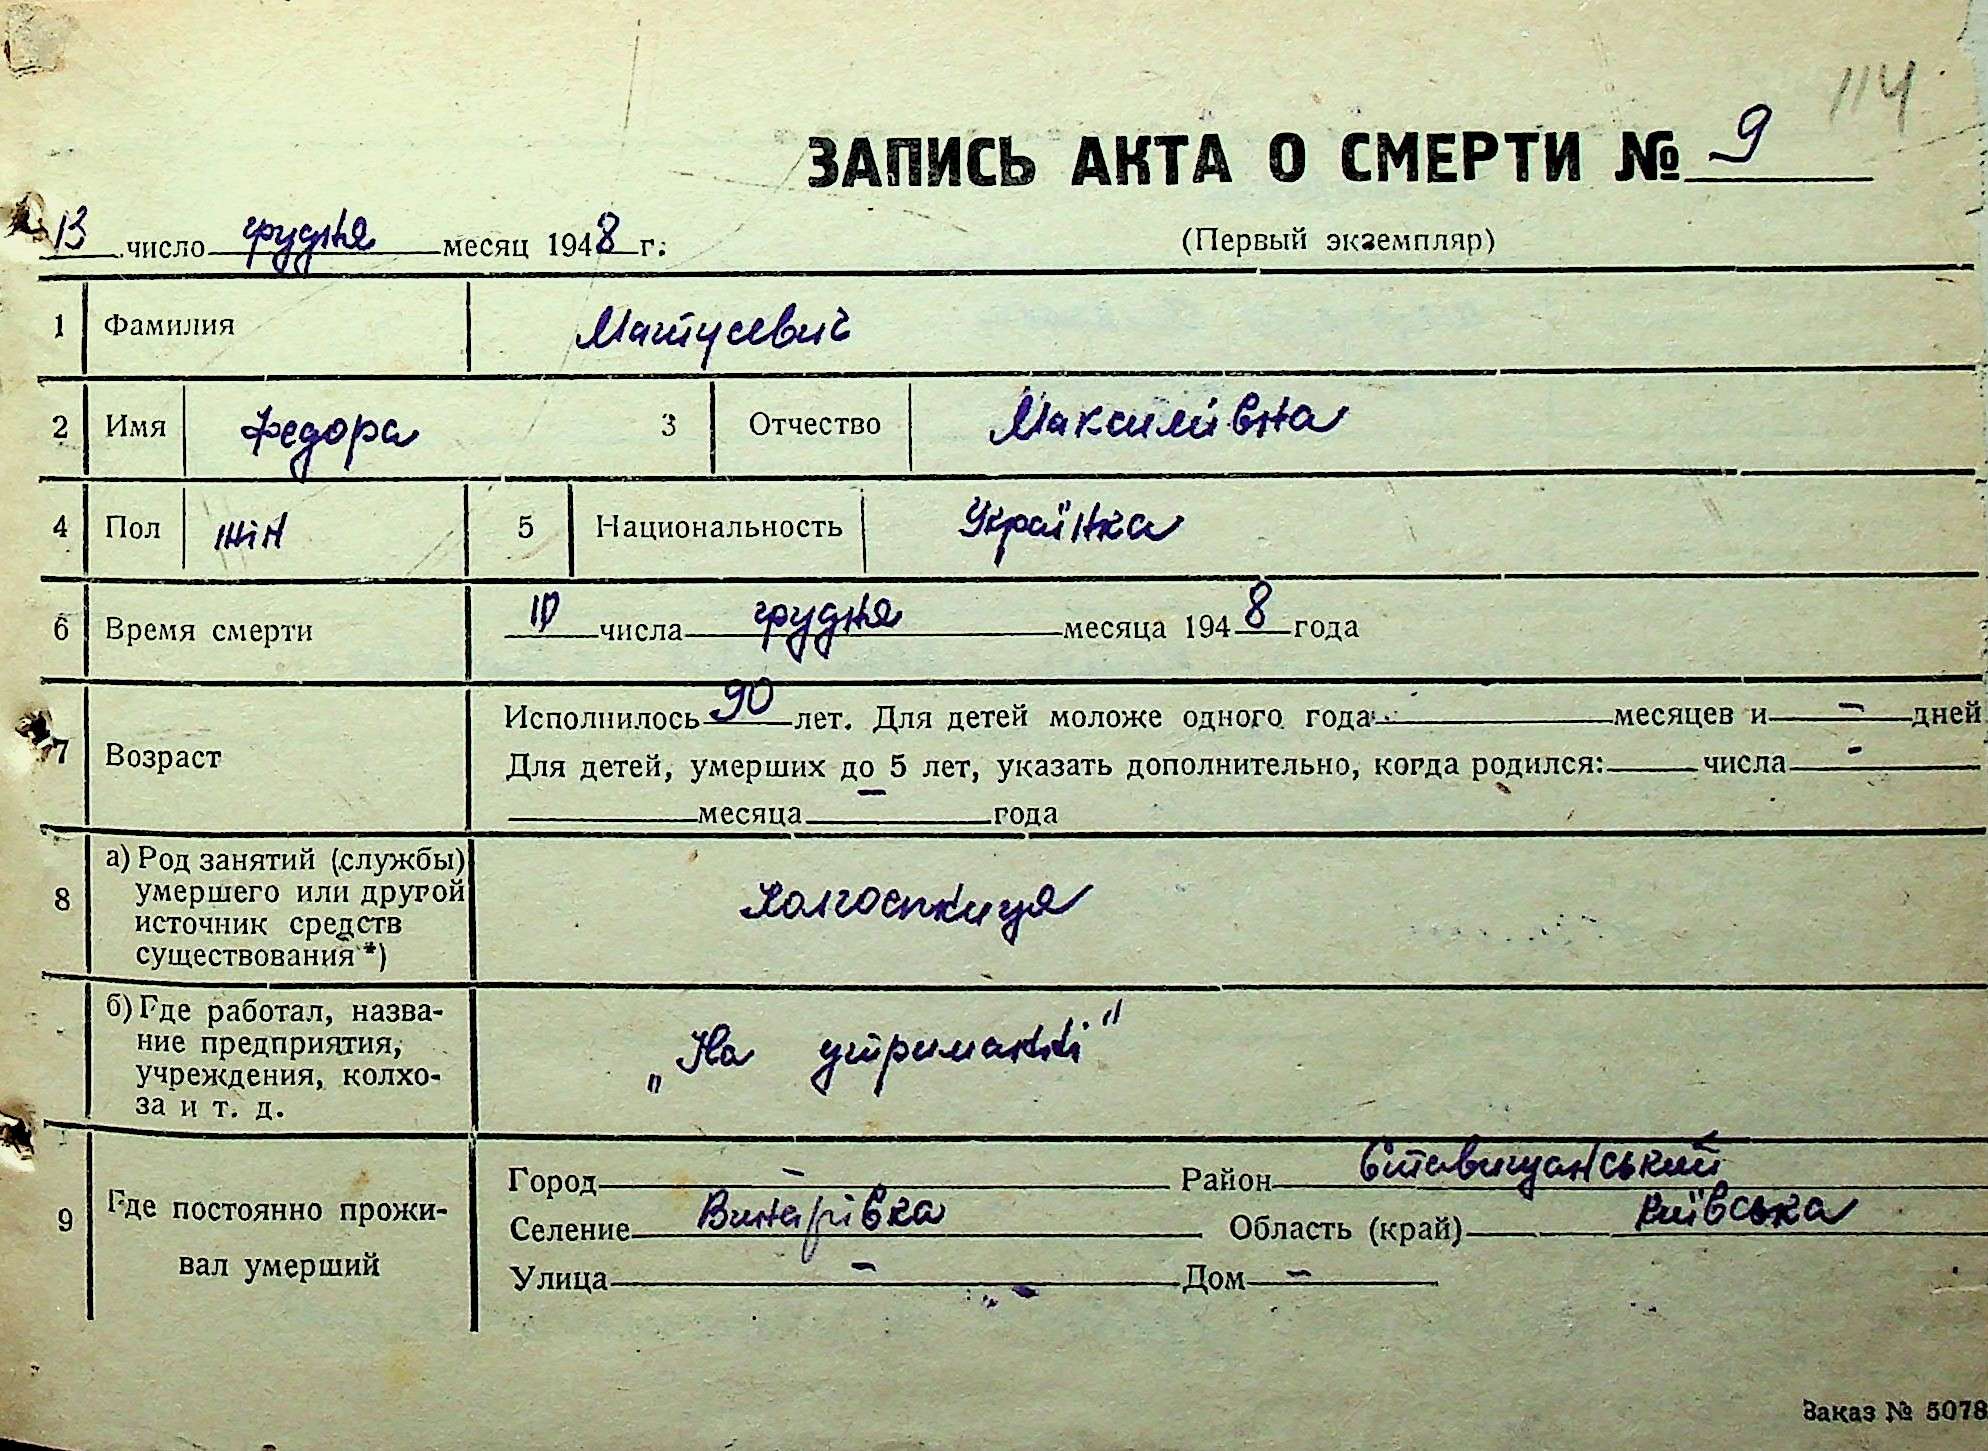 114
ЗАПИСЬ АКТА О СМЕРТИ № 9
13 число грудня месяц 1948 г.
(Первый экземпляр)
1 Фамилия Матусевич
2 Имя Федора 3 Отчество Максимівна
4 Пол жін 5 Национальность Українка
6 Время смерти 10 числа грудня месяца 1948 года
7 Возраст Исполнилось 90 лет. Для детей моложе одного года месяцев и - дней
Для детей, умерших до 5 лет, указать дополнительно, когда родился: числа -
месяца - года
8 а) Род занятий (службы)
умершего или другой
источник средств
существования *)
Колгоспниця
б) Где работал, назва-
ние предприятия,
учреждения, колхо-
за и т. д.
„На утриманні"
9 Где постоянно прожи-
вал умерший
Город - Район Ставищанський
Селение Винарівка Область (край) Київська
Улица - Дом -
Заказ № 5078